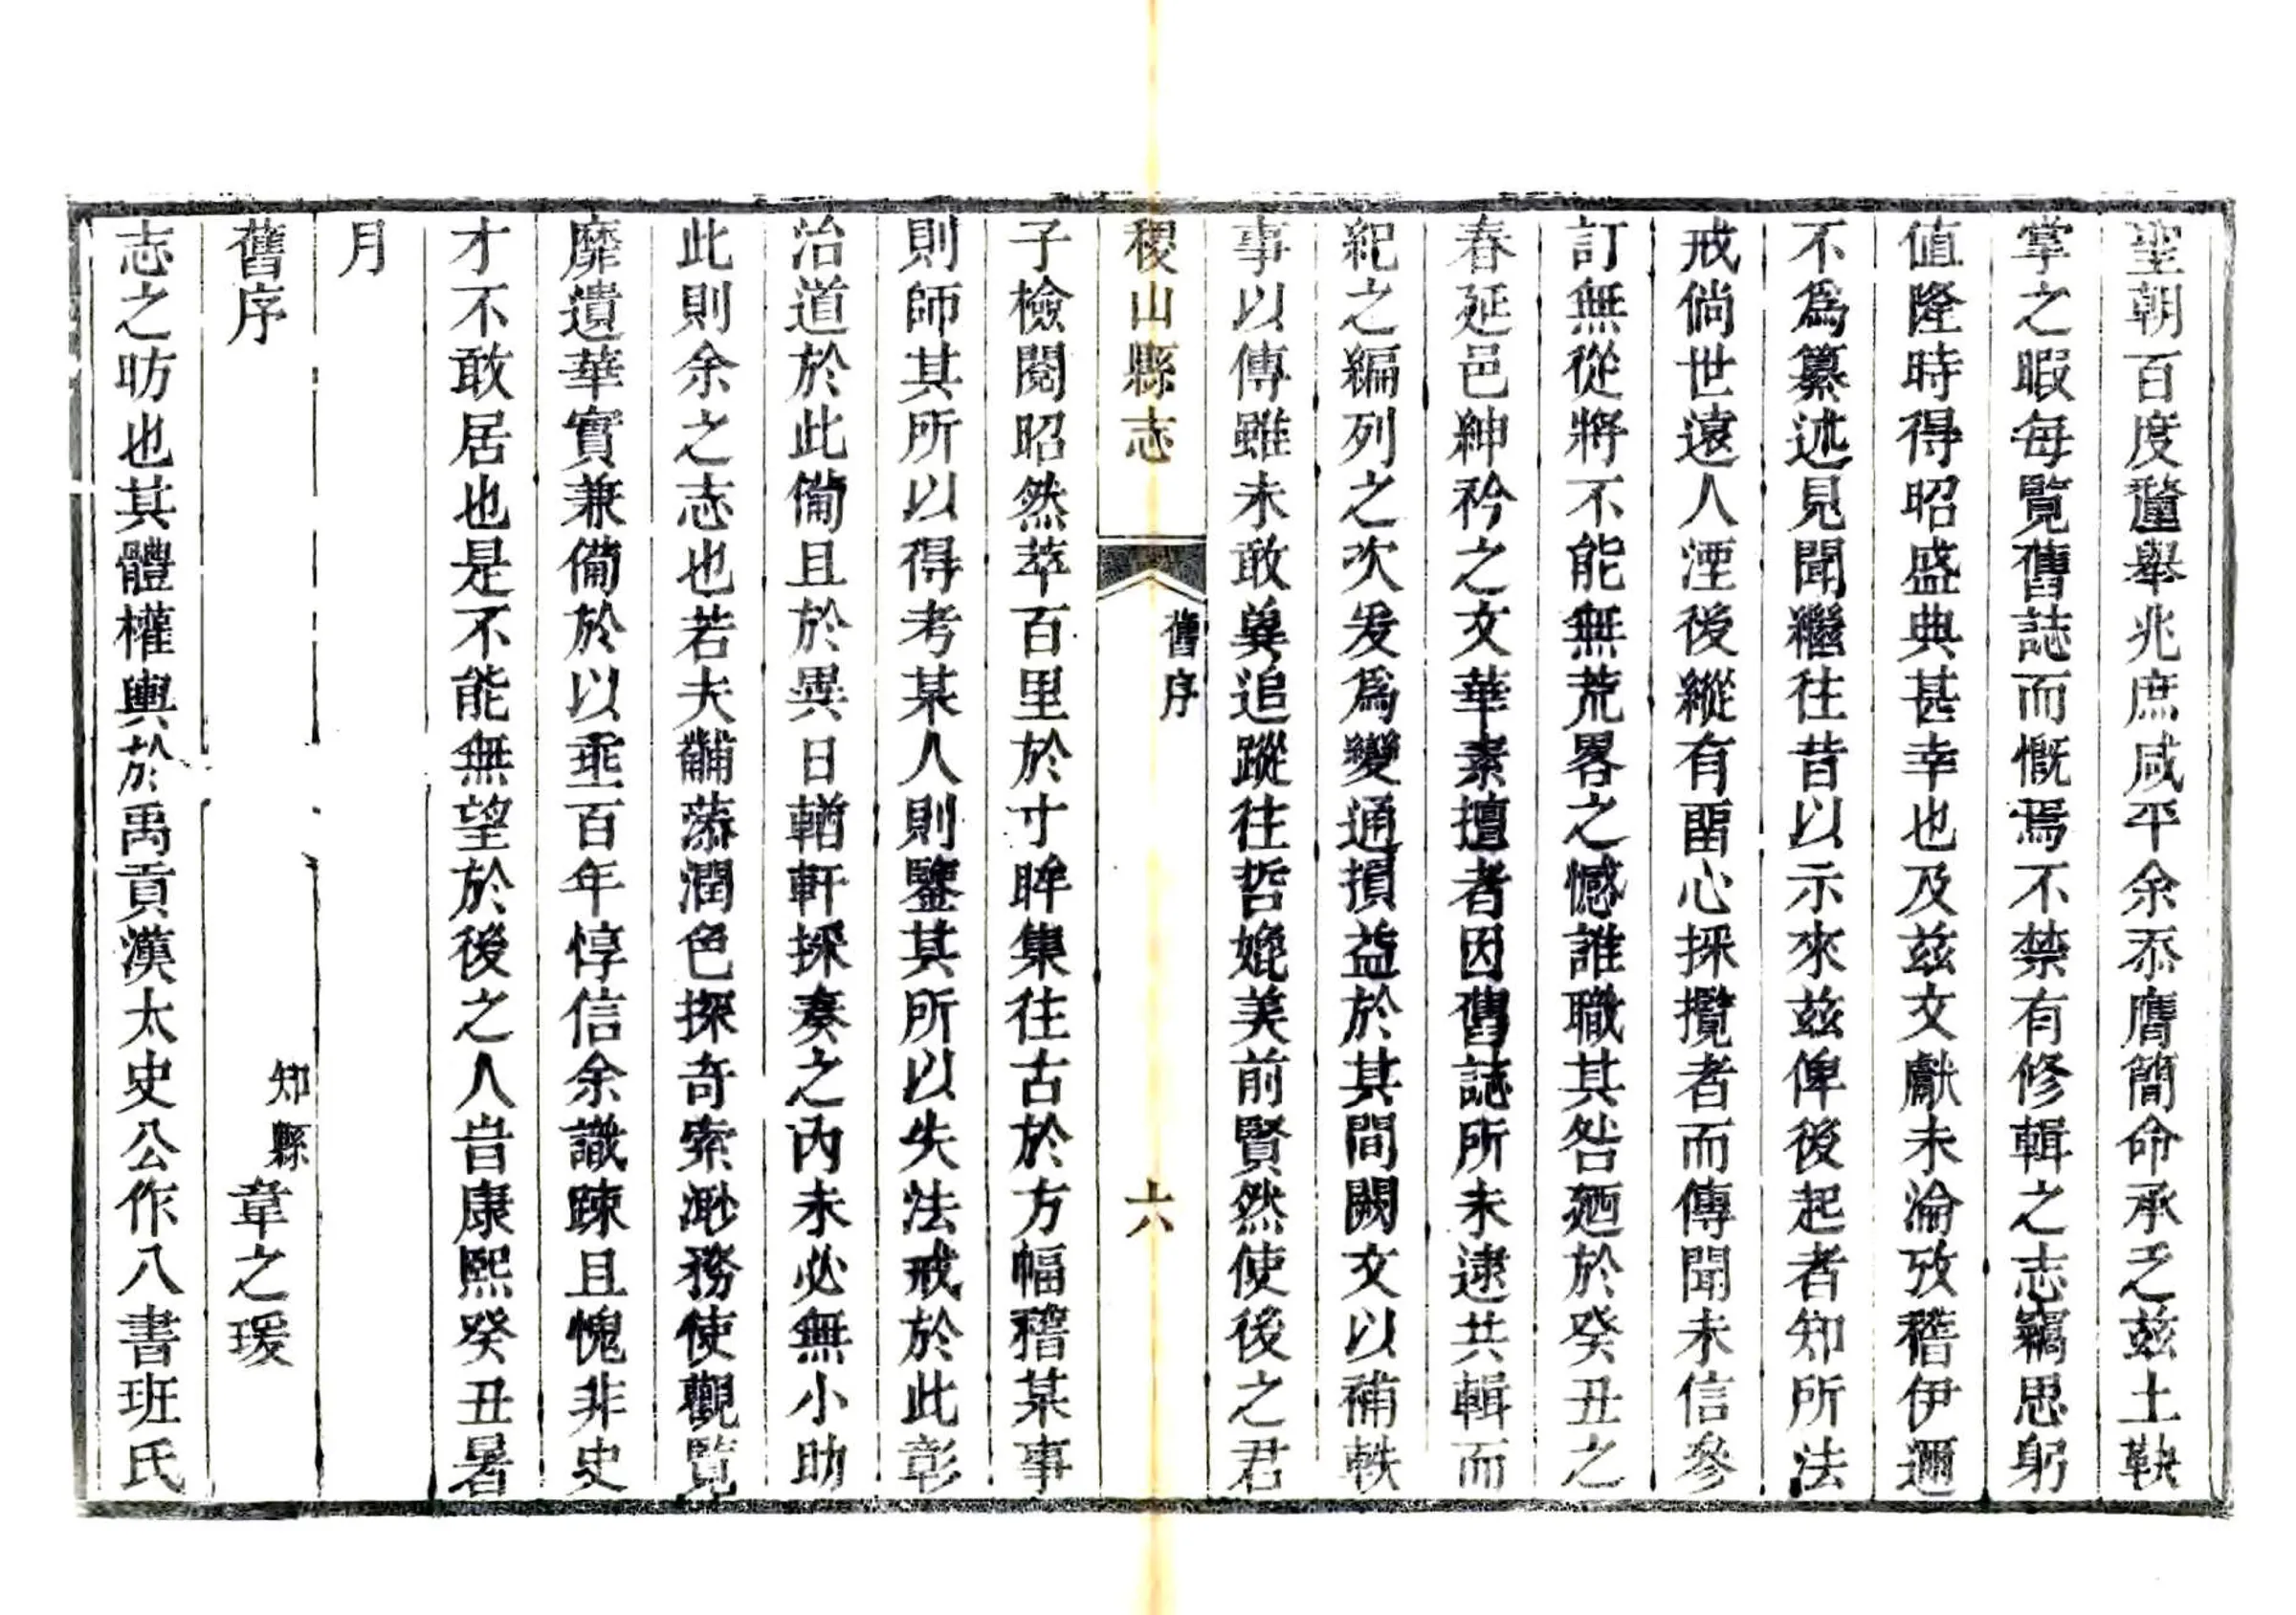 聖朝百度釐舉兆庶咸平余忝膺簡命承乏兹土鞅
掌之暇每覽舊誌而慨焉不禁有修輯之志竊思躬
值隆時得昭盛典甚幸也及兹文獻未淪攷稽伊邇
不爲纂述見聞繼往昔以示來兹俾後起者知所法
戒倘世遠人湮後縱有畱心採攬者而傳聞未信參
訂無從將不能無荒畧之憾誰職其咎廼於癸丑之
春延邑紳矜之文華素擅者因舊誌所未逮共輯而
紀之編列之次爰爲變通損益於其間闕文以補軼
事以傳雖未敢冀追蹤往哲媲美前賢然使後之君
稷山縣志
舊序
六
子檢閱昭然萃百里於寸眸集往古於方幅稽某事
則師其所以得考某人則鑒其所以失法戒於此彰
治道於此備且於異日輶軒採奏之內未必無小助
此則余之志也若夫黼藻潤色探奇索渺務使觀覽
靡遺華實兼備於以垂百年惇信余識踈且愧非史
才不敢居也是不能無望於後之人旹康熙癸丑暑
月
舊序
知縣韋之瑗
志之昉也其體權輿於禹貢漢太史公作八書班氏